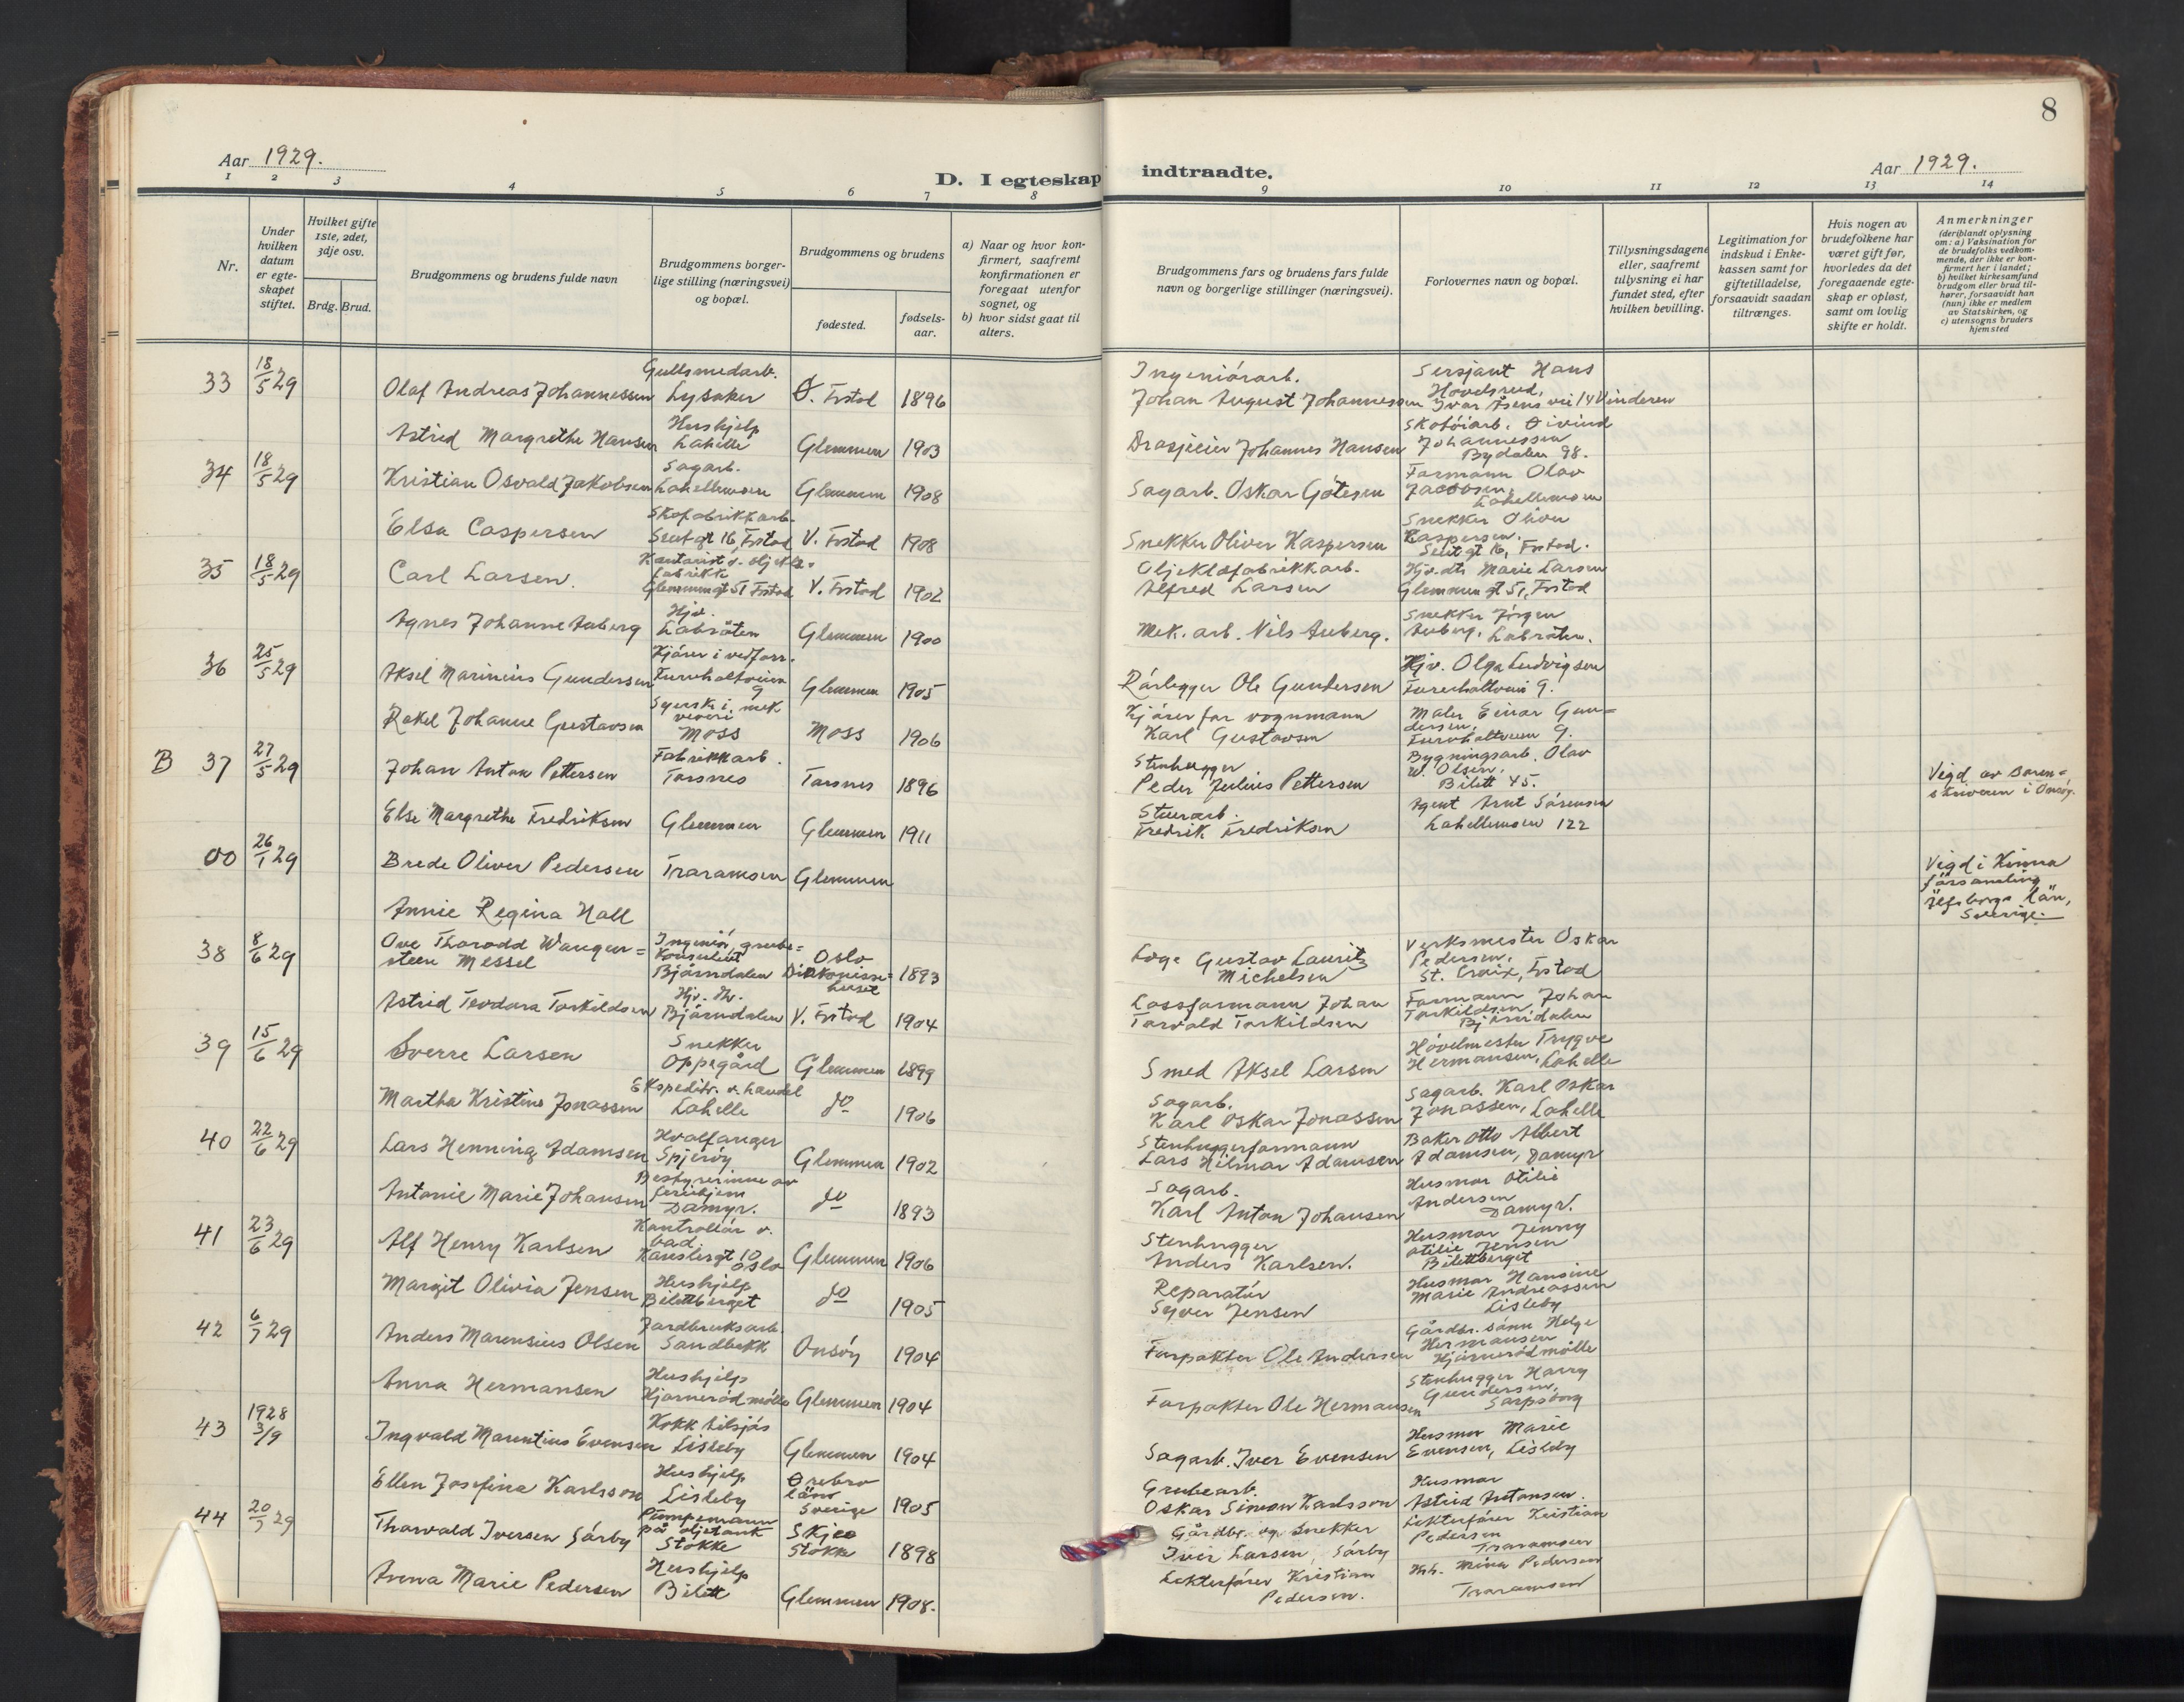 8
Aar 1929.
D. I egteskap indtraadte.
Aar 1929.
1 2 3 4 5 6 7 8 9 10 11 12 13 14
Nr.
Under hvilken datum er egteskapet stiftet.
Hvilket gifte 1ste, 2det, 3dje osv.
Brdg. Brud.
Brudgommens og brudens fulde navn
Brudgommens borgerlige stilling (næringsvei) og bopæl.
Brudgommens og brudens
fødested.
fødselsaar.
a) Naar og hvor konfirmert, saafremt konfirmationen er foregaat utenfor sognet, og
b) hvor sidst gaat til alters.
Brudgommens fars og brudens fars fulde navn og borgerlige stillinger (næringsvei).
Forlovernes navn og bopæl.
Tillysningsdagene eller, saafremt tillysning ei har fundet sted, efter hvilken bevilling.
Legitimation for indskud i Enkekassen samt for giftetilladelse, forsaavidt saadan tiltrænges.
Hvis nogen av brudefolkene har været gift før, hvorledes da det foregaaende egteskap er opløst, samt om lovlig skifte er holdt.
Anmerkninger (deriblandt oplysning om: a) Vaksination for de brudefolks vedkommende, der ikke er konfirmert her i landet; b) hvilket kirkesamfund brudgom eller brud tilhører, forsaavidt han (hun) ikke er medlem av Statskirken, og c) utensogns bruders hjemsted
33 18/5 29 Olaf Andreas Johannessen Gullsmedarb. Lysaker Ø. Frstad 1896 Ingeniørarb. Johan August Johannessen Sersjant Hans Hovelsrud, Ivar Åsens vei 14 Vinderen
Astrid Margrethe Hansen Hushjelp Lahelle Glemmen 1903 Drosjeeier Johannes Hansen Skotøiarb. Øivind Johannessen Bydalen 98.
34 18/5 29 Kristian Osvald Jakobsen Sagarb. Lahellemoen Glemmen 1908 Sagarb. Oskar Götesen Formann Olav Jacobsen, Lahellemoen
Elsa Caspersen Skofabrikkarb. 16, Frstad V. Frstad 1908 Snekker Oliver Kaspersen Snekker Oliver Kaspersen. 16, Frstad.
35 18/5 29 Carl Larsen. Kontorist v. oljekl.fabrikk Glemmengt 51 Frstad V. Frstad 1902 Oljeklæfabrikkarb. Alfred Larsen Hjv. dtr Marie Larsen Glemmengt 51, Frstad
Agnes Johanne Auberg Hjv. Labråten Glemmen 1900 Mek. arb. Nils Auberg. Snekker Jörgen Auberg, Labråten.
36 25/5 29 Aksel Marinius Gundersen Kjörer i vedforr. Furuholtveien 9 Glemmen 1905 Rörlegger Ole Gundersen Hjv. Olga Ludvigsen Furuholtveien 9.
Rakel Johanne Gustavsen Syersk i mek veveri Moss Moss 1906 Kjörer for vognmann Karl Gustavsen Maler Einar Gundersen, Furuholtveien 9.
B 37 27/5 29 Johan Anton Pettersen Fabrikkarb. Torsnes Torsnes 1896 Stenhugger Peder Julius Pettersen Bygningsarb. Olav W. Olsen, Bilitt 45. Vigd av Sorenskriveren i Onsöy.
Else Margrethe Fredriksen Glemmen Glemmen 1911 Stuerarb. Fredrik Fredriksen Agent Arnt Sörensen Lahellemoen 122
00 26/1 29 Brede Oliver Pedersen Traramoen Glemmen Vigd i Kinna församling Älfsborgs län, Sverige.
Annie Regina Hall
38 8/6 29 Ove Thorodd Wangensteen Messel Ingeniör, grubekonsulent Björndalen Oslo Diakonissehuset 1893 Loge Gustav Lauritz Michelsen Verksmester Oskar Pedersen, St. Croix, Frstad
Astrid Teodora Torkildsen Hjv. dtr. Björndalen V. Frstad 1904 Lossformann Johan Torvald Torkildsen Formann Johan Torkildsen, Björndalen
39 15/6 29 Sverre Larsen Snekker Oppegård Glemmen 1899 Smed Aksel Larsen Hövelmester Trygve Hermansen, Lahelle
Martha Kristine Jonassen Ekspeditr. v. handel Lahelle do 1906 Sagarb. Karl Oskar Jonassen Sagarb. Karl Oskar Jonassen, Lahelle
40 22/6 29 Lars Henning Adamsen Hvalfanger Spjeröy Glemmen 1902 Stenhuggerformann Lars Hilmar Adamsen Baker Otto Albert Adamsen, Damyr
Antonie Marie Johansen Bestyrerinne av feriehjem Damyr. do 1893 Sagarb. Karl Anton Johansen Husmor Otilie Andersen Damyr.
41 23/6 29 Alf Henry Karlsen Kontrollör v. bad. 10 Oslo Glemmen 1906 Stenhugger Anders Karlsen. Husmor Jenny Otilie Jensen Bilittberget
Margit Olivia Jensen Hushjelp Bilittberget do 1905 Reparatör Syver Jensen Husmor Hansine Marie Andreassen Lisleby
42 6/7 29 Anders Marensius Olsen Jordbruksarb. Sandbekk Onsöy 1904 Forpakter Ole Andersen Gårdbr. sönn Helge Hermansen Hjörneröd mölle
Anna Hermansen Hushjelp Hjörneröd mölle Glemmen 1904 Forpakter Ole Hermansen Stenhugger Harry Gundersen, Sarpsborg
43 1928 3/9 Ingvald Marentius Evensen Kokk tilsjös Lisleby Glemmen 1904 Sagarb. Iver Evensen Husmor Marie Evensen, Lisleby
Ellen Josefina Karlsson Hushjelp Lisleby Örebro län Sverige 1905 Grubearb. Oskar Simon Karlsson Husmor Astrid Antonsen.
44 20/7 29 Thorvald Iversen Sörby Pumpemann på oljetank Stokke Skjee Stokke 1898 Gårdbr. og snekker Iver Larsen Sörby Lekterförer Kristian Pedersen Traramoen
Anna Marie Pedersen Hushjelp Bilitt Glemmen 1908. Lekterförer Kristian Pedersen. Mina Pedersen Traramoen